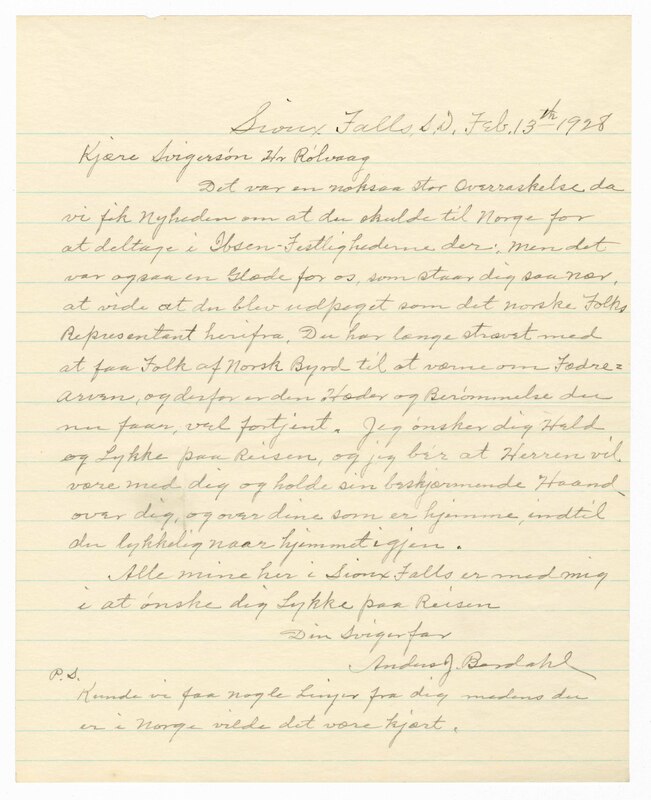 Sioux Falls, S.D, Feb. 13th 1928
Kjære Svigersøn Hr Rölvaag
Det var en noksaa stor Overraskelse da
vi fik Nyheden om at du skulde til Norge for
at deltage i Ibsen-Festlighederne der; men det
var ogsaa en Glæde for os, som staar dig saa nær,
at vide at du blev udpeget som det norske Folks
Representant herifra. Du har længe strævet med
at faa Folk af Norsk Byrd til at værne om Fædre=
arven, og derfor er den Hæder og Berømmelse du
nu faar, vel fortjent. Jeg ønsker dig Held
og Lykke paa Reisen, og jeg ber at Herren vil
være med dig og holde sin beskjærmende Haand
over dig, og over dine som er hjemme, indtil
du lykkelig naar hjemmet igjen.
Alle mine her i Sioux Falls er med mig
i at ønske dig Lykke paa Reisen
Din Svigerfar
Andrew J. Berdahl
P.S.
Kunde vi faa nogle Linjer fra dig medens du
er i Norge vilde det være kjært.